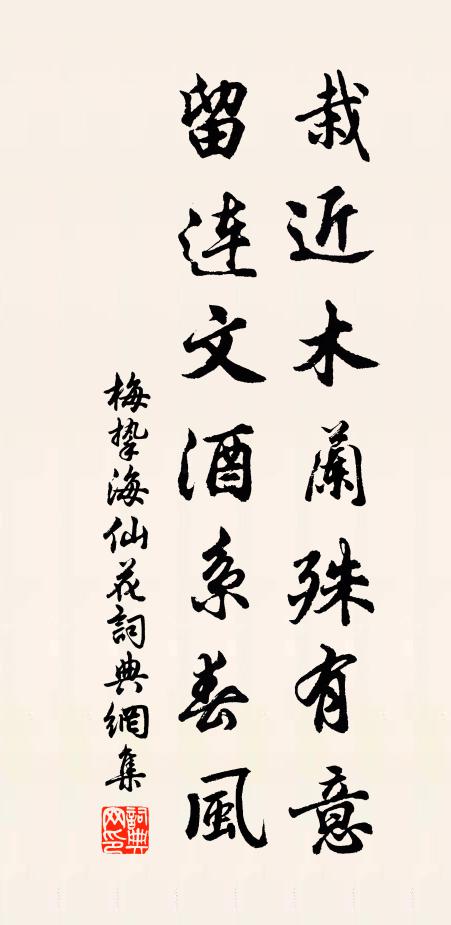 栽近木蘭殊有意
留連文酒系春風
梅挚海仙花詞典網集
詞典網印